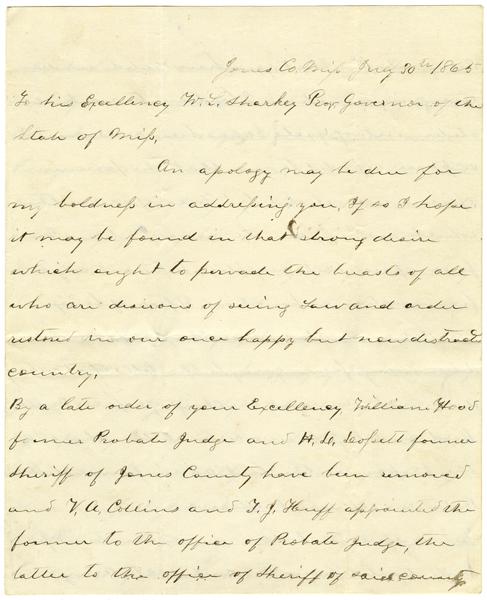 Jones Co. Miss July 30th 1865
To his Excellency W. L. Sharkey Pro. Governor of the
State of Miss,
An apology may be due for
my boldness in addressing you, If so I hope
it may be found in that strong desire
which ought to pervade the breasts of all
who are desirous of seeing Law and order
restored in our once happy but now distracted
country,
By a late order of your Excellency William Hood
former Probate Judge and H. L. former
Sheriff of Jones County have been removed
and V. A. Collins and T. J. Huff appointed the
former to the office of Probate Judge, the
latter to the office of Sheriff of said county